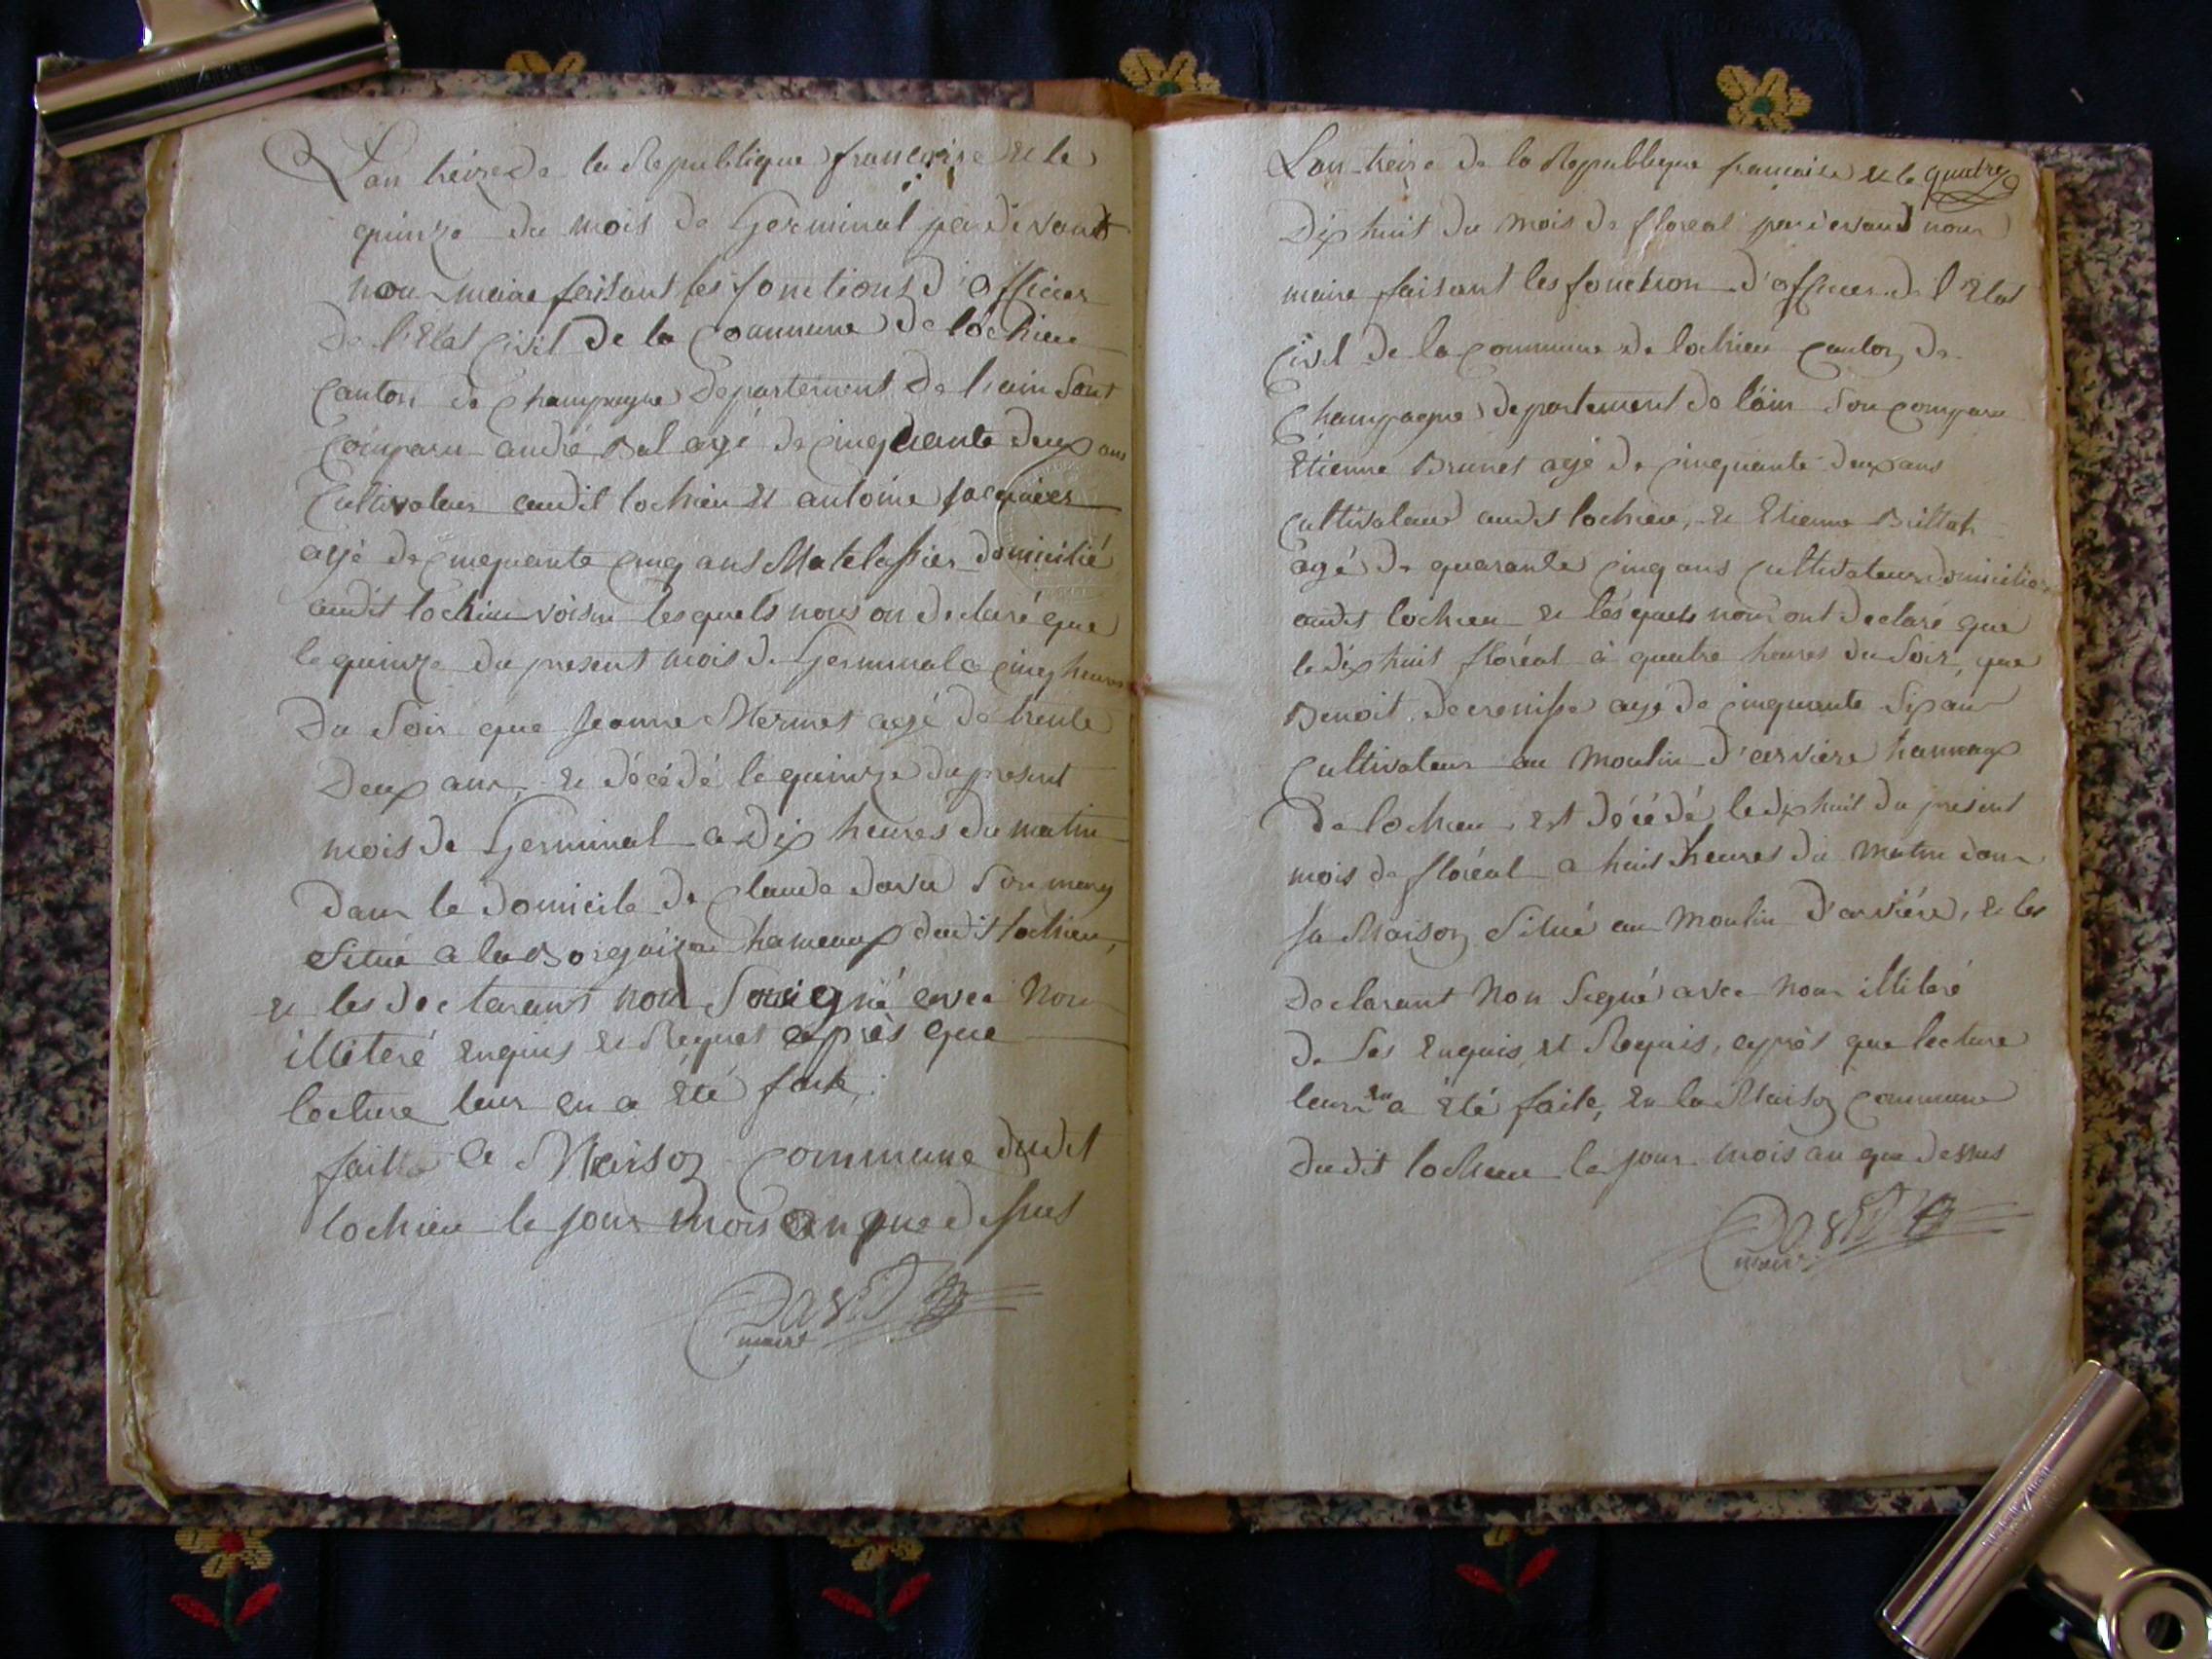 L'an treize de la Republique francoise & le
quinze du mois de Germinal par devant
nous maire faisant les fonctions d'officier
de l'Etat Civil de la Commune de lochieu
Canton de Champagne Departement de l'ain Sont
Comparu andré Bal agé de Cinquante deux ans
Cultivateur audit lochieu & antoine Jacquier
agé de Cinquante Cinq ans Matelassier domicilié
audit lochieu voisin lesquels nous on declaré que
le quinze du present mois de Germinal a Cinq heures
du Soir que Jeanne Mermet agé de trente
deux ans, & décédé le quinze du present
mois de Germinal a dix heures du matin
dans le domicile de Claude Son mary
Situé a la hameaux dudit lochieu,
& les declarant non Souigné avec Nous
illiteré Enquis & Requis après que
lecture leur en a Eté faite.
fait a a Maison Commune dudit
lochieu le jour mois an que dessus
David
maire
quatre
L'an treize de la Republique francaise & le
Dix huit du mois de floreal par devant nous
maire faisant les fonction d'officier de l'Etat
Civil de la Commune de lochieu Canton de
Champagne departement de l'ain Son Comparu
Etienne Brunet agé de Cinquante deux ans
Cultivateur audit lochieu, & Etienne Brillat
agé de quarante Cinq ans Cultivateur domicilier
audit lochieu & lesquels nous ont declaré que
le dix huit floréal à quatre heures du Soir, que
Benoit agé de Cinquante Six ans
Cultivateur au Moulin d'arviere hammaux
de lochieu, est décédé le dix huit du present
mois de floréal a huit heures du Matin dans
Sa Maison Situé au Moulin d'arviére, & les
declarant Non Signé avec nous illiteré
de Ses Enquis et Requis, après que lecture
leur en a Eté faite, En la Maison Commune
dudit lochieu le jour mois an que dessus
David
maire